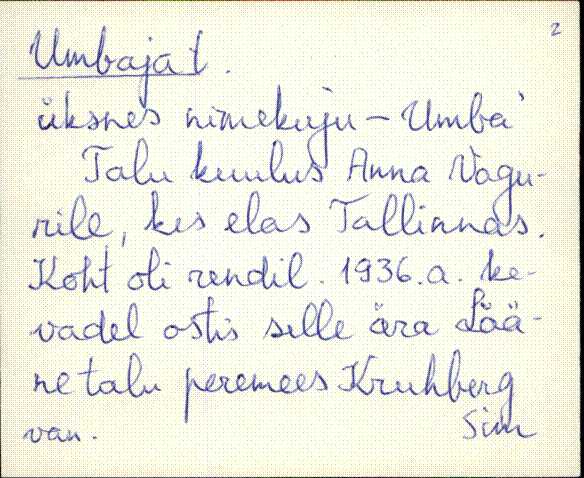 2
Umbaja t.
üksnes nimekuju – Umba'
Talu kuulus Anna Vagu-
rile, kes elas Tallinnas.
Koht oli rendil. 1936.a. ke-
vadel ostis selle ära Lää-
netalu peremees Kruhberg
van. Sim